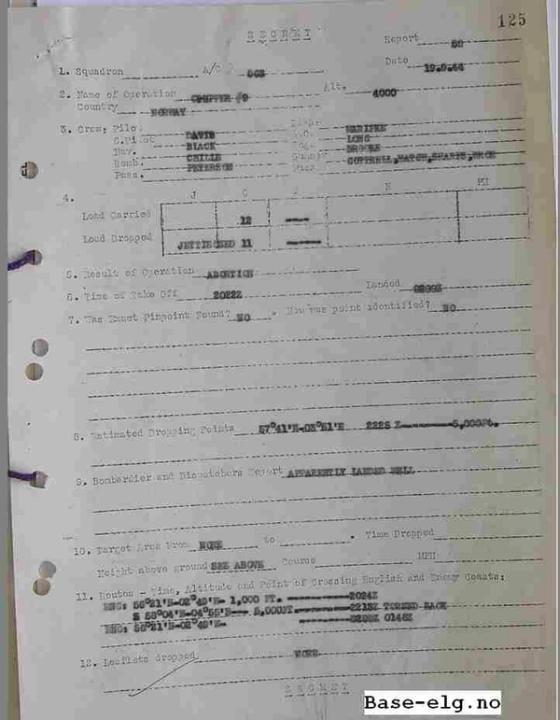 125
SECRET
Report 50
1. Squadron A/C 563
Date 19.9.44
2. Name of Operation CHUPPER #9 Alt. 4000
Country NORWAY
3. Crew; Pilot DAVIS
C.Pilot BLACK LONG
Nav. CHILLE BROOKE
Bomb. PETERSON COTTRELL,HATCH,SHARPS,
Pass.
4. J C P N PKI
Load Carried 12
Load Dropped JETTISONED 11
5. Result of Operation ABORTION
6. Time of Take Off 2022Z Landed
7. Was Exact Pinpoint Found? NO . How was point identified? NO
8. Estimated Dropping Points 57°41'N-03°51'E 2225 Z 5,000Ft.
9. Bombardier and Dispatchers Report APPARENTLY LANDED WELL
10. Target Area From NONE to . Time Dropped
Height above ground SEE ABOVE Course MPH
11. Routes - Time, Altitude and Point of Crossing English and Enemy Coasts:
ENG: 1,000 FT. 2024Z
E 58°04'N-04°55'E 5,000FT 2215Z TURNED BACK
ENG: 0146Z
12. Leaflets dropped NONE
SECRET
Base-elg.no